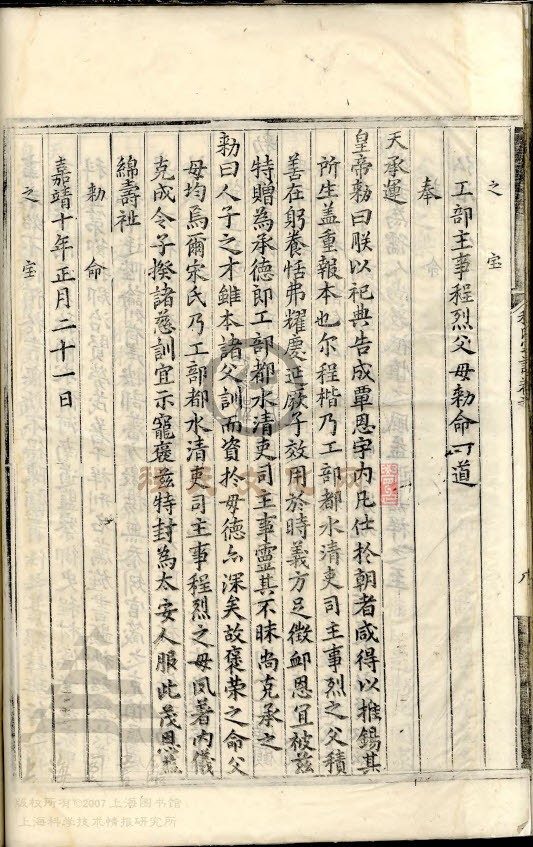 之寶
工部主事程烈父母勅命一道
奉
天承運
皇帝勅曰朕以祀典告成覃恩宇内凡仕於朝者咸得以推錫其
所生盖重報本也尔程楷乃工部都水清吏司主事烈之父積
善在躬養恬弗耀慶延厥子效用於時義方足徵䘏恩宜被兹
特贈為承德郎工部都水清吏司主事靈其不昧尚克承之
勅曰人子之才雖本諸父訓而資於母德亦深矣故褒荣之命父
母均焉爾宋氏乃工部都水清吏司主事程烈之母夙著内儀
克成令子揆諸慈訓宜示寵褒兹特封為太安人服此茂恩益
綿壽祉
勅命
嘉靖十年正月二十一日
之宝
版权所有©2007上海图书馆
上海科学技术情报研究所